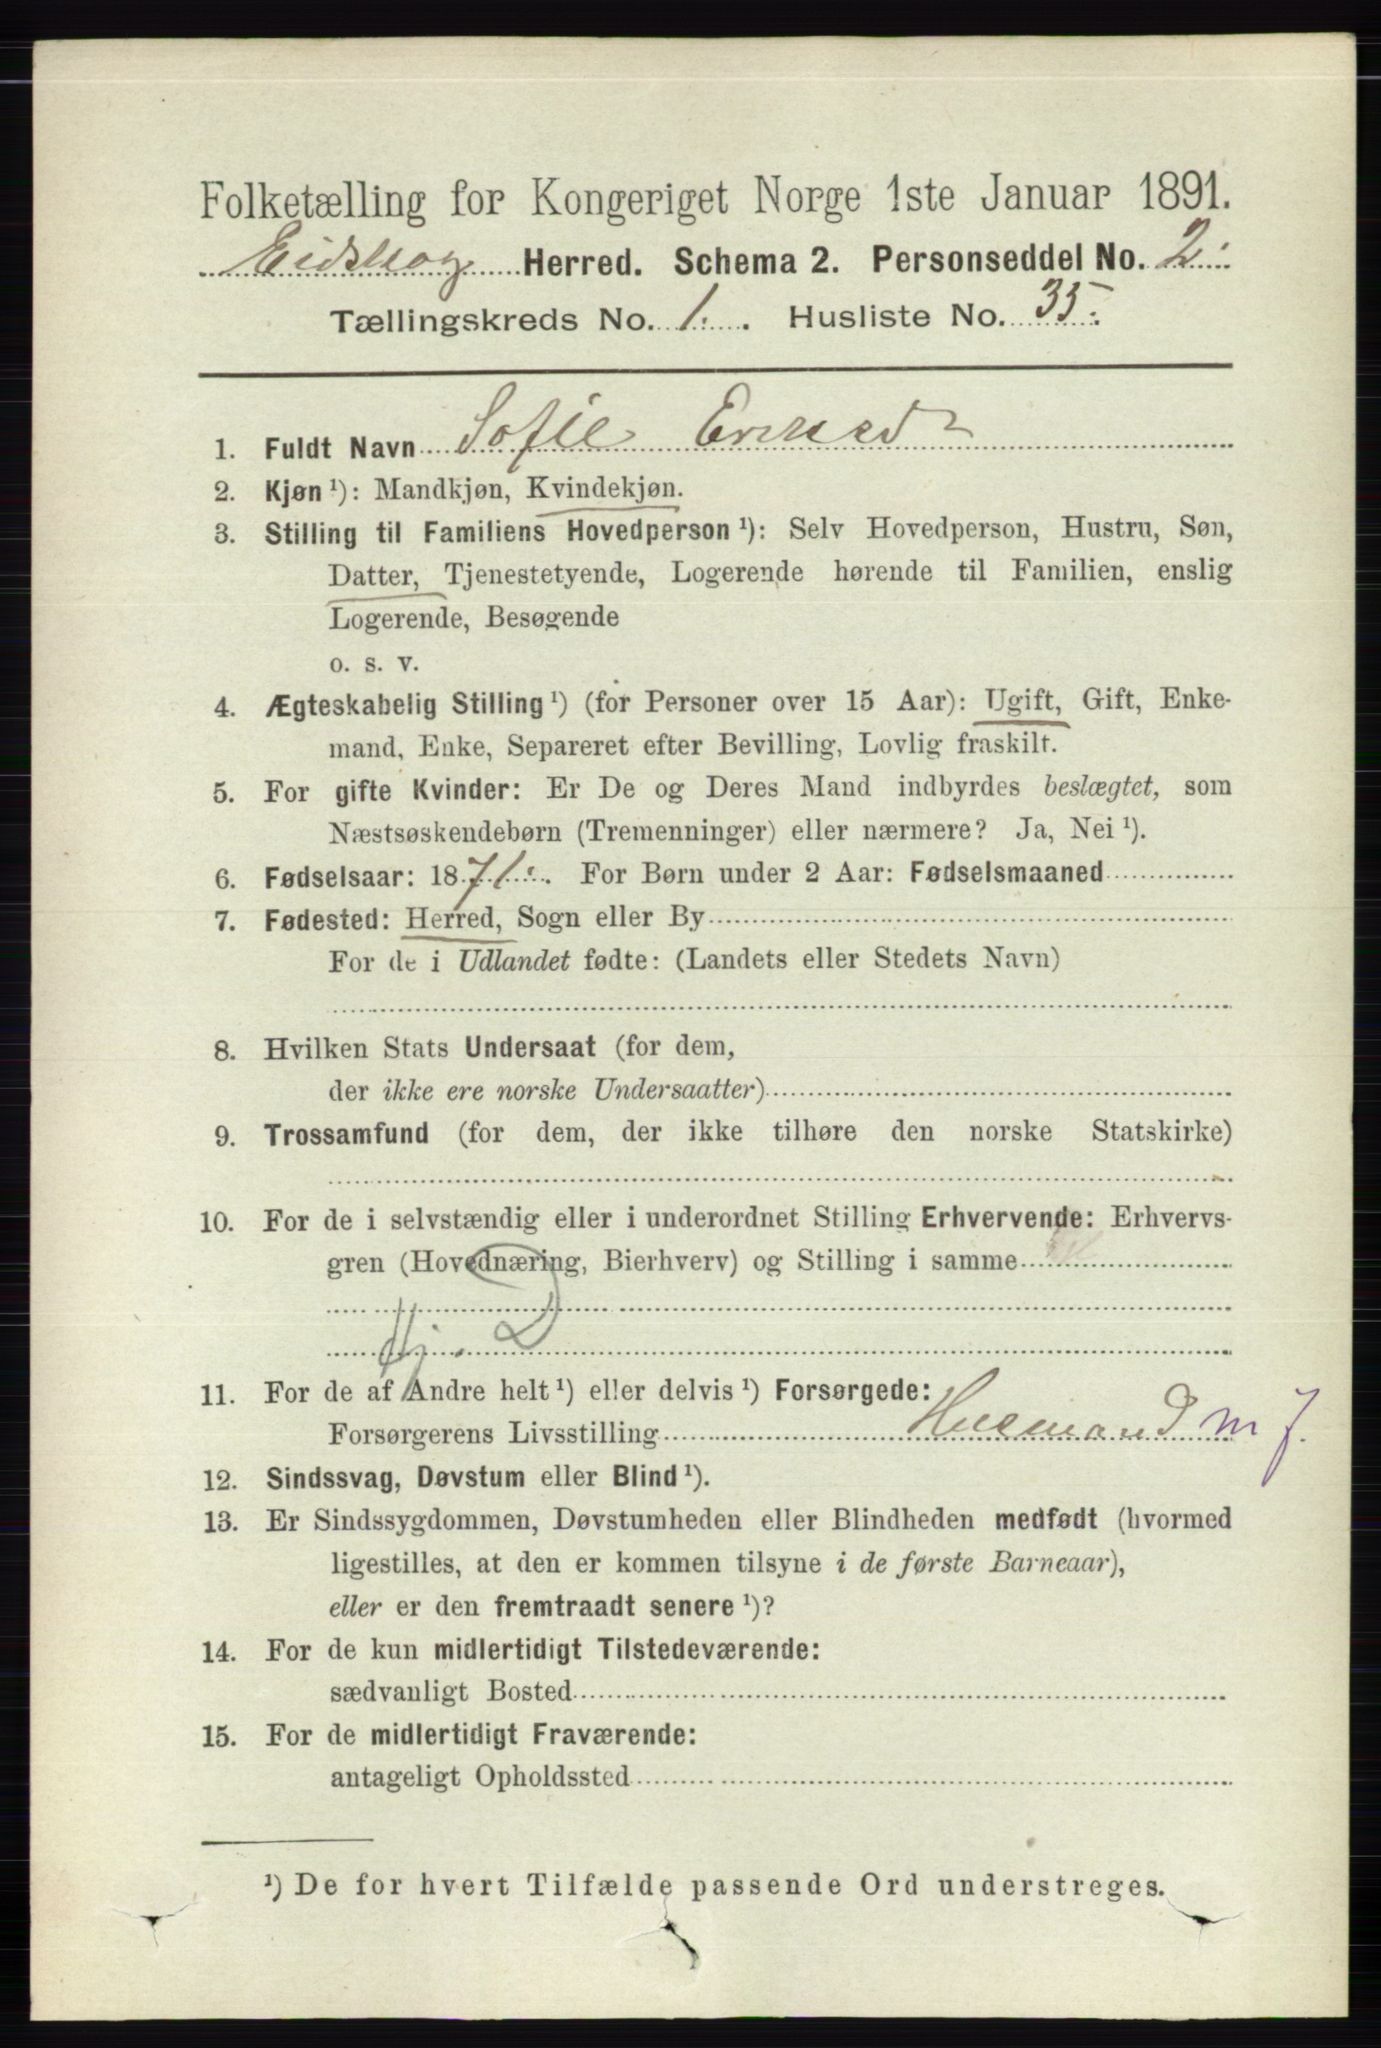 Folketælling for Kongeriget Norge 1ste Januar 1891.
Eidskog Herred. Schema 2. Personseddel No. 2.
Tællingskreds No. 1. Husliste No. 35.
1. Fuldt Navn Sofie
2. Kjøn ¹): Mandkjøn, Kvindekjøn.
3. Stilling til Familiens Hovedperson ¹): Selv Hovedperson, Hustru, Søn,
Datter, Tjenestetyende, Logerende hørende til Familien, enslig
Logerende, Besøgende
o. s. v.
4. Ægteskabelig Stilling ¹) (for Personer over 15 Aar): Ugift, Gift, Enke-
mand, Enke, Separeret efter Bevilling, Lovlig fraskilt.
5. For gifte Kvinder: Er De og Deres Mand indbyrdes beslægtet, som
Næstsøskendebørn (Tremenninger) eller nærmere? Ja, Nei ¹).
6. Fødselsaar: 1871. For Børn under 2 Aar: Fødselsmaaned
7. Fødested: Herred, Sogn eller By
For de i Udlandet fødte: (Landets eller Stedets Navn)
8. Hvilken Stats Undersaat (for dem,
der ikke ere norske Undersaatter)
9. Trossamfund (for dem, der ikke tilhøre den norske Statskirke)
10. For de i selvstændig eller i underordnet Stilling Erhvervende: Erhvervs-
gren (Hovednæring, Bierhverv) og Stilling i samme
Hj. D
11. For de af Andre helt ¹) eller delvis ¹) Forsørgede:
Forsørgerens Livsstilling Husmand m J.
12. Sindssvag, Døvstum eller Blind ¹).
13. Er Sindssygdommen, Døvstumheden eller Blindheden medfødt (hvormed
ligestilles, at den er kommen tilsyne i de første Barneaar),
eller er den fremtraadt senere ¹)?
14. For de kun midlertidigt Tilstedeværende:
sædvanligt Bosted
15. For de midlertidigt Fraværende:
antageligt Opholdssted
¹) De for hvert Tilfælde passende Ord understreges.